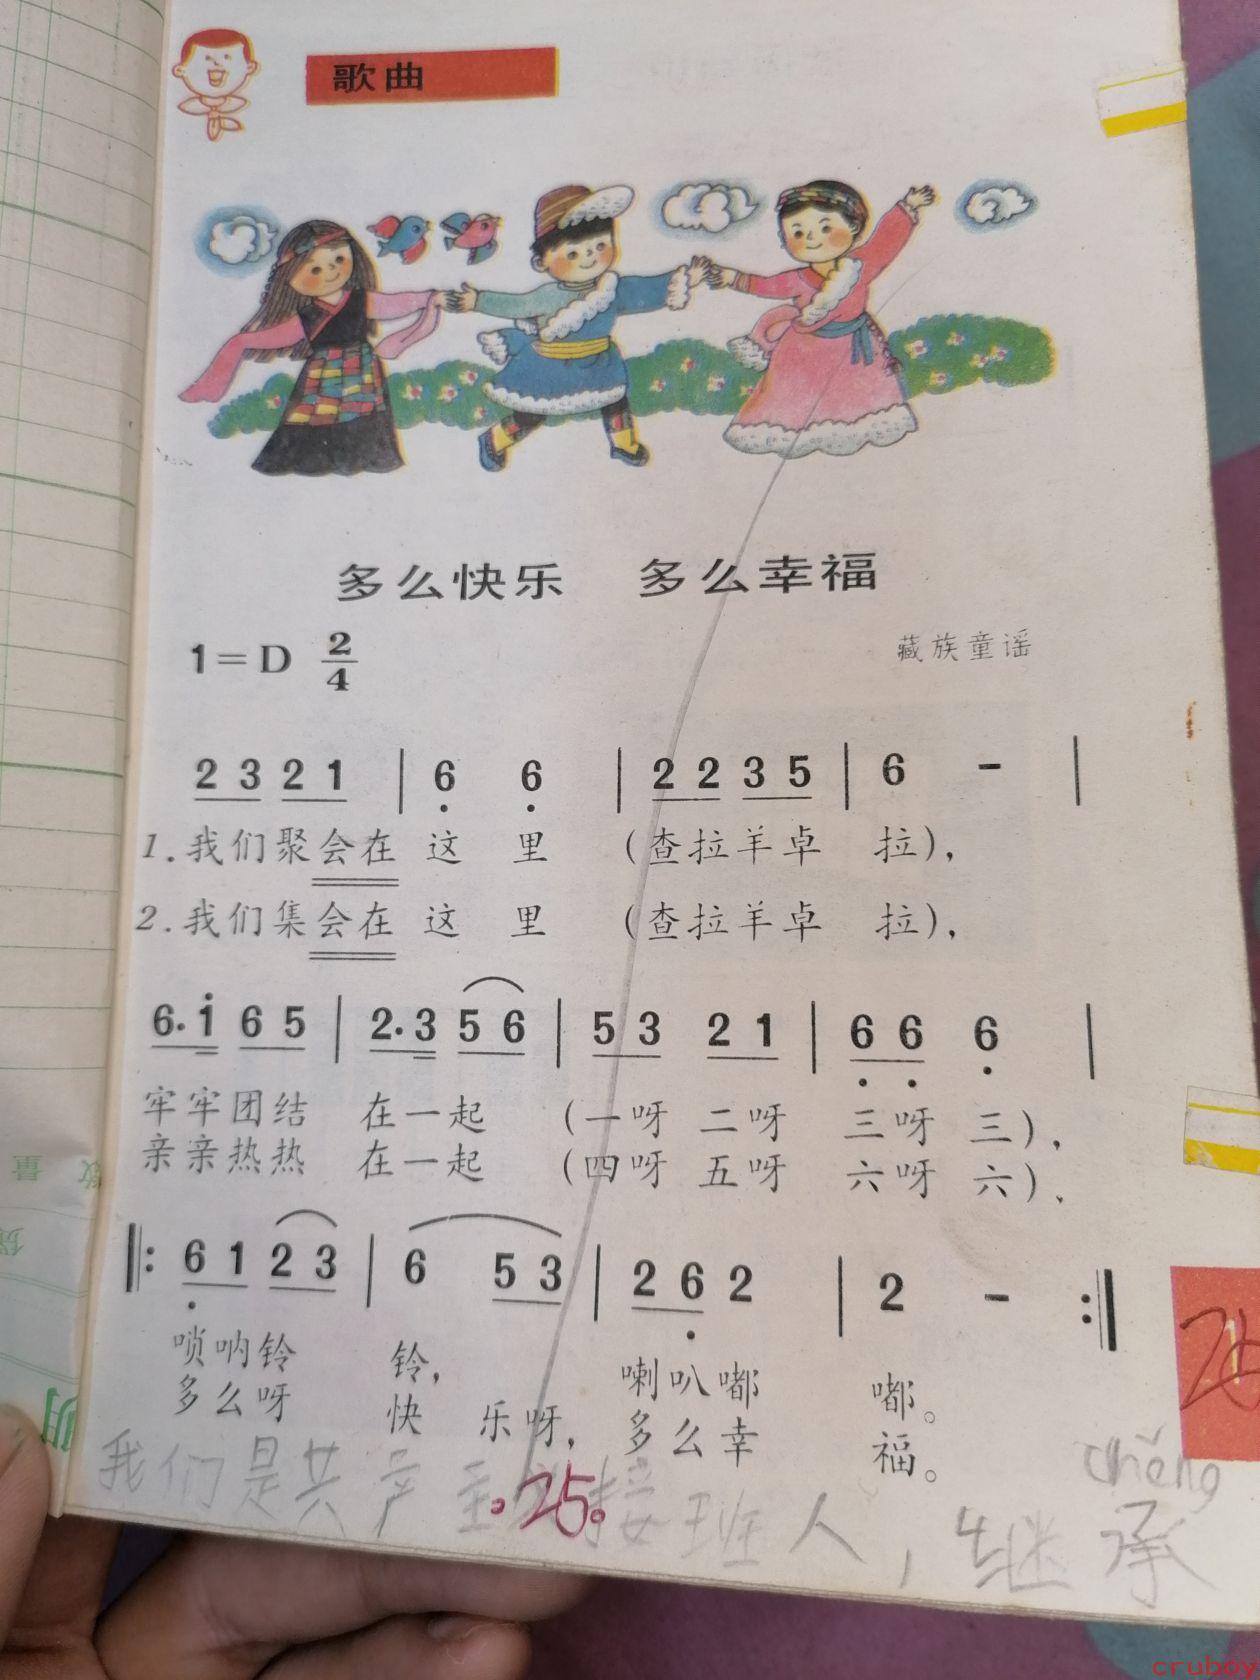 歌曲
多么快乐 多么幸福
1=D 2/4
藏族童谣
2 3 2 1 | 6̣ 6̣ | 2 2 3 5 | 6 - |
1.我们聚会在 这 里 (查拉羊卓 拉),
2.我们集会在 这 里 (查拉羊卓 拉),
6·i̇ 6 5 | 2·3 5 6 | 5 3 2 1 | 6̣ 6̣ 6̣ |
牢牢团结 在一起 (一呀 二呀 三呀 三),
亲亲热热 在一起 (四呀 五呀 六呀 六),
‖: 6̣ 1 2 3 | 6 5 3 | 2 6̣ 2 | 2 - :‖
唢呐铃 铃, 喇叭嘟 嘟。
多么呀 快 乐呀, 多么幸 福。
chěng
我们是共产主 接班人,继承
·25·
cruboy